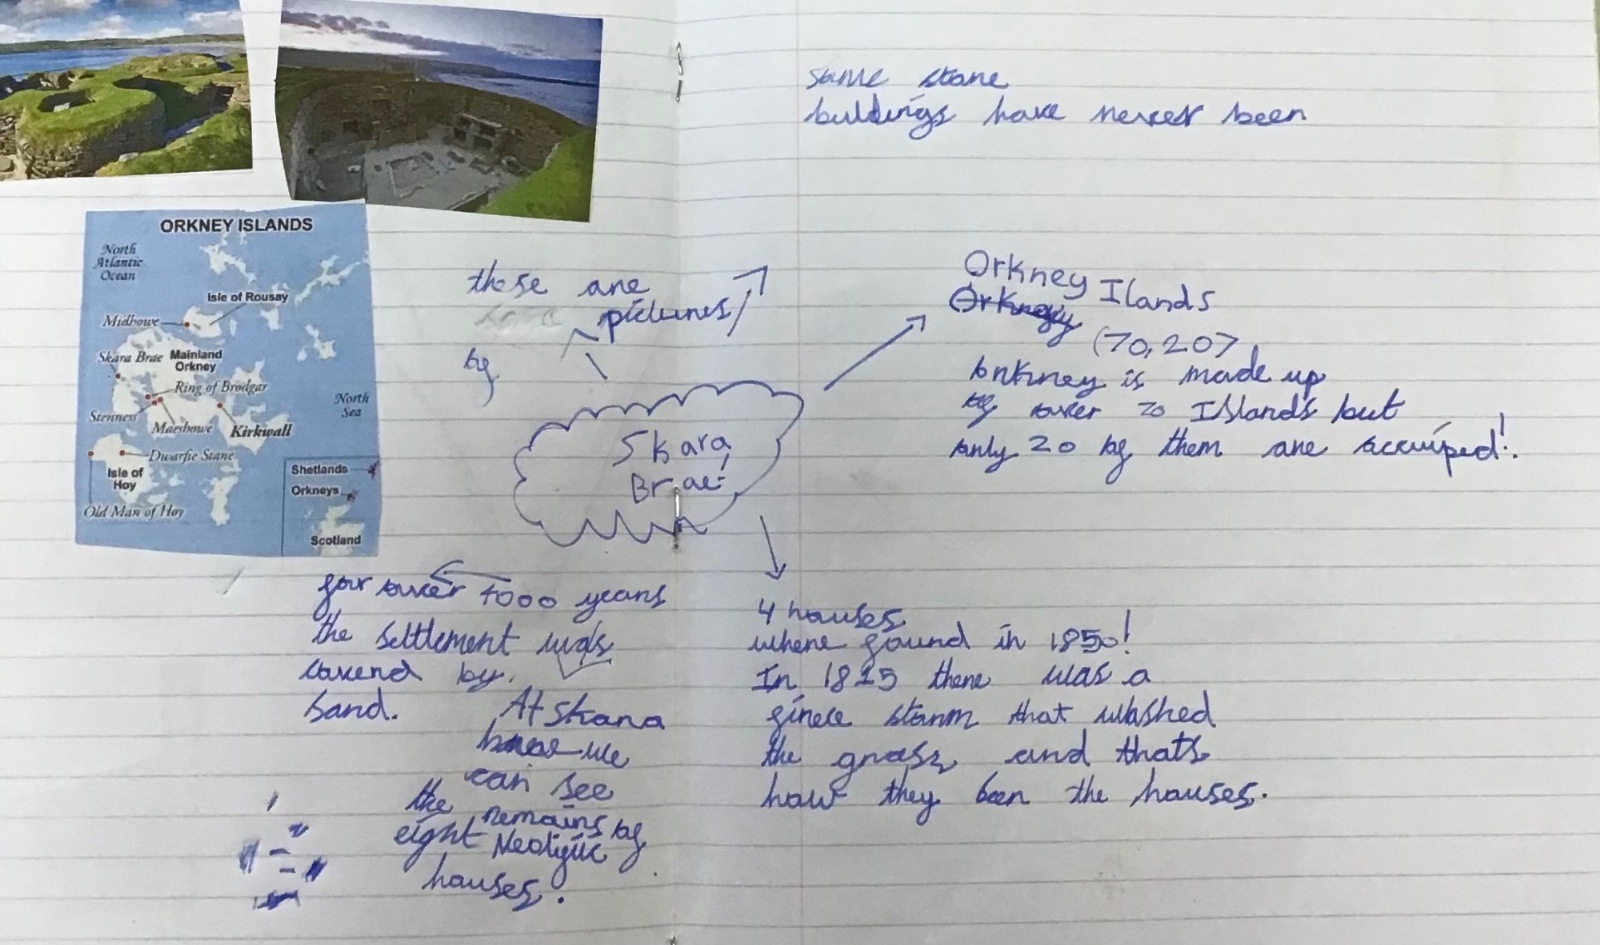 some stone
buildings have never been
ORKNEY ISLANDS
North
Atlantic
Ocean
Isle of Rousay
Midhowe
Skara Brae
Mainland
Orkney
Ring of Brodgar
Stenness
Maeshowe
Kirkwall
North
Sea
Dwarfie Stane
Isle of
Hoy
Old Man of Hoy
Shetlands
Orkneys
Scotland
these are
pictures
of
Orkney Ilands
Orkney
(70,20)
orkney is made up
of over 70 Islands but
only 20 of them are accuiped!.
Skara
Brae
for over 4000 years
the settlement was
coverd by
sand.
At skara
brae we
can see
the remains of
eight Neoliguic
houses.
4 houses
where found in 1850!
In 1815 there was a
firece storm that washed
the grass and thats
how they been the houses.